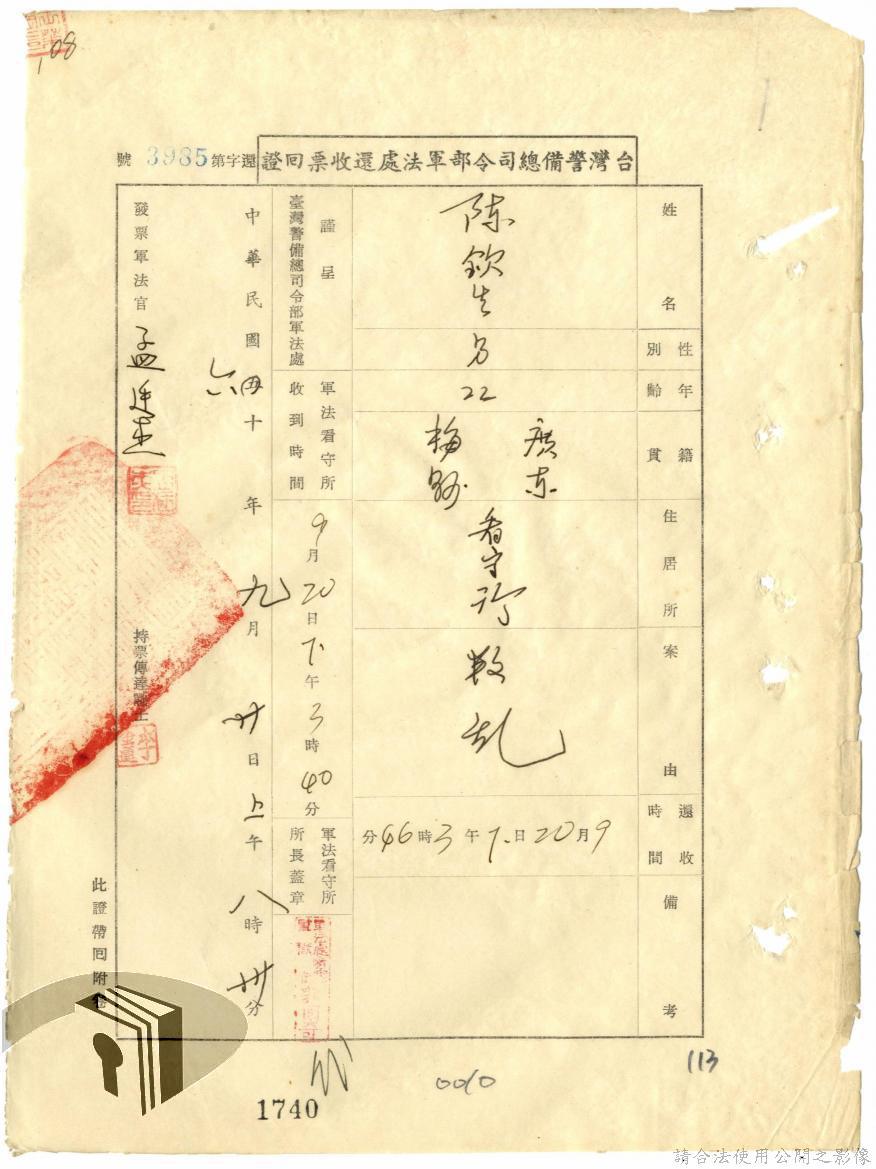 108
台灣警備總司令部軍法處還收票回證
還字第3985號
姓名
陳欽生
性別
男
年齡
22
籍貫
廣東
梅縣
住居所
看守所
案由
叛乱
還收時間
9月20日下午3時46分
備考
謹呈
臺灣警備總司令部軍法處
軍法看守所收到時間
9月20日下午3時40分
軍法看守所所長蓋章
中華民國六十年九月廿日上午八時卅分
發票軍法官
孟廷杰
持票傳達
此證帶回附卷
113
0010
1740
請合法使用公開之影像